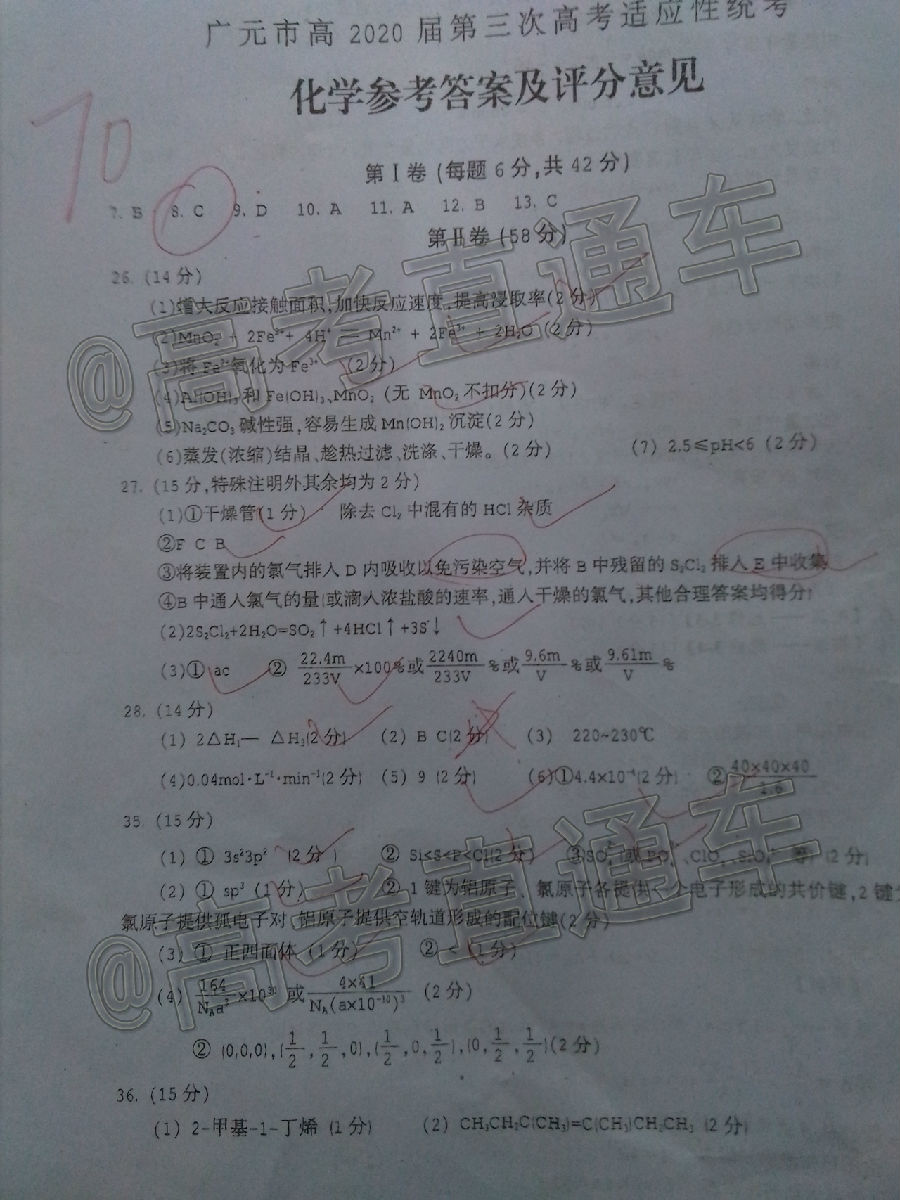 广元市高 2020 届第三次高考适应性统考
化学参考答案及评分意见
70
第Ⅰ卷 (每题 6 分,共 42 分)
7. B 8. C 9. D 10. A 11. A 12. B 13. C
第Ⅱ卷 (58 分)
26. (14 分)
(1)增大反应接触面积,加快反应速度,提高浸取率(2 分)
(2)MnO₂ + 2Fe²⁺+ 4H⁺ = Mn²⁺ + 2Fe³⁺ + 2H₂O (2 分)
(3)将 Fe²⁺氧化为 Fe³⁺ (2 分)
(4)Al(OH)₃和 Fe(OH)₃、MnO₂ (无 MnO₂不扣分)(2 分)
(5)Na₂CO₃ 碱性强,容易生成 Mn(OH)₂ 沉淀(2 分)
(6)蒸发(浓缩)结晶、趁热过滤、洗涤、干燥。(2 分) (7) 2.5≤pH<6 (2 分)
27. (15 分,特殊注明外其余均为 2 分)
(1)①干燥管(1 分) 除去 Cl₂ 中混有的 HCl 杂质
②F C B
③将装置内的氯气排入 D 内吸收以免污染空气,并将 B 中残留的 S₂Cl₂ 排入 E 中收集
④B 中通入氯气的量(或滴入浓盐酸的速率,通入干燥的氯气,其他合理答案均得分)
(2)2S₂Cl₂+2H₂O=SO₂↑+4HCl↑+3S↓
(3)① ac ② 22.4m/233V ×100%或 2240m/233V %或 9.6m/V %或 9.61m/V %
28. (14 分)
(1) 2△H₁— △H₂(2 分) (2) B C(2 分) (3) 220~230℃
(4)0.04mol·L⁻¹·min⁻¹(2 分) (5) 9 (2 分) (6)①4.4×10⁻⁴(2 分) ② 40×40×40/1.6
35. (15 分)
(1) ① 3s²3p² (2 分) ② Si<S<P<Cl(2 分) ③SO₄ 或 PO₄ 、ClO₄ 、SiO₄ 等 (2 分)
(2) ① sp³ (1 分) ② 1 键为铝原子、氯原子各提供一个电子形成的共价键,2 键为
氯原子提供孤电子对、铝原子提供空轨道形成的配位键(2 分)
(3) ① 正四面体 (1 分) ② < (1 分)
(4) 164/Nₐa³ ×10³⁰ 或 4×41/Nₐ(a×10⁻¹⁰)³ (2 分)
② (0,0,0),(1/2,1/2,0),(1/2,0,1/2),(0,1/2,1/2)(2 分)
36. (15 分)
(1) 2-甲基-1-丁烯 (1 分) (2) CH₃CH₂C(CH₃)=C(CH₃)CH₂CH₃ (2 分)
@高考直通车
@高考直通车